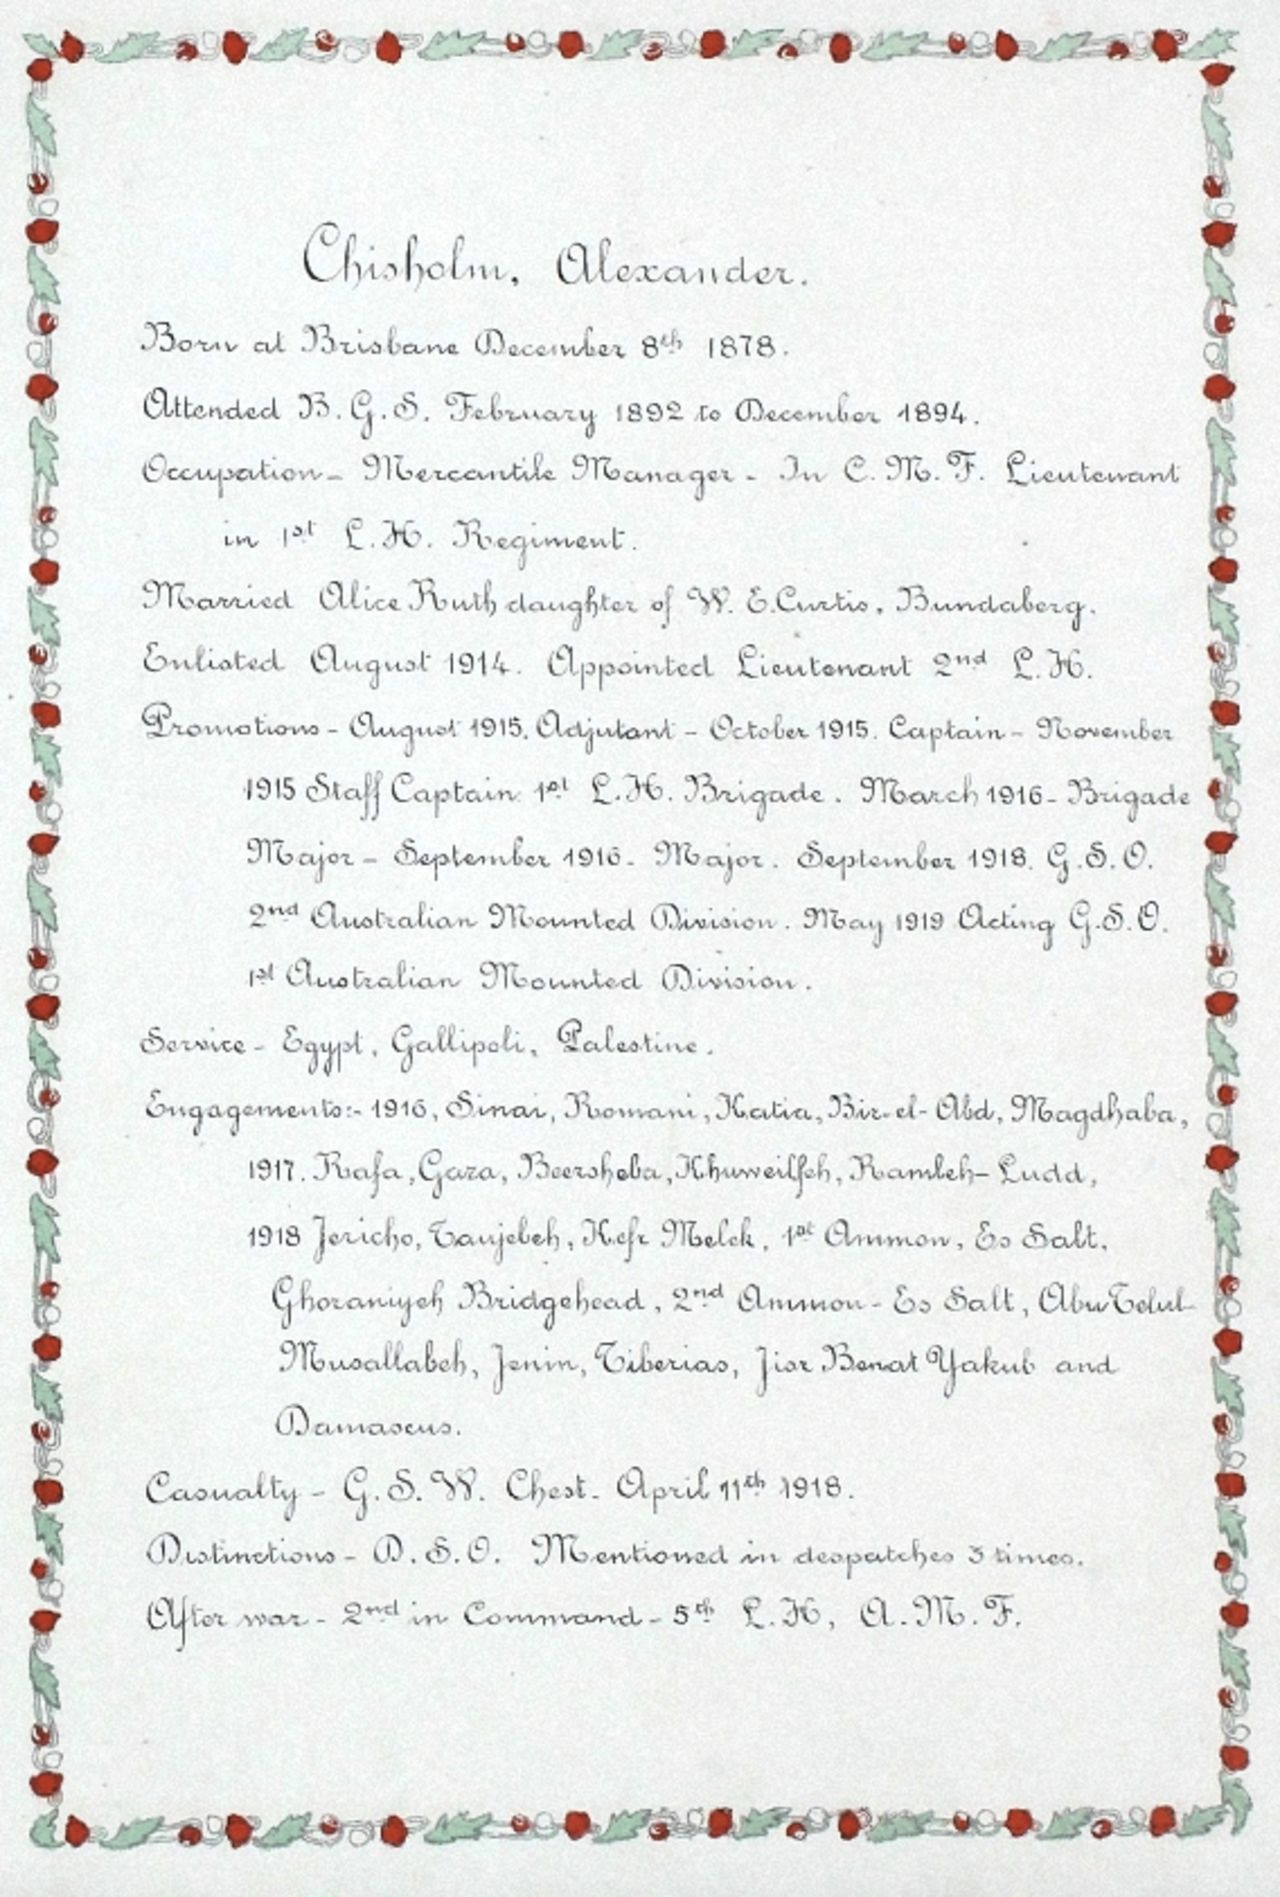 Chisholm, Alexander.
Born at Brisbane December 8th 1878.
Attended B.G.S. February 1892 to December 1894.
Occupation - Mercantile Manager - In C.M.F. Lieutenant
in 1st L.H. Regiment.
Married Alice Ruth daughter of W. E. Curtis, Bundaberg.
Enlisted August 1914. Appointed Lieutenant 2nd L.H.
Promotions - August 1915. Adjutant - October 1915. Captain - November
1915 Staff Captain 1st L.H. Brigade. March 1916 - Brigade
Major - September 1916 - Major. September 1918. G.S.O.
2nd Australian Mounted Division. May 1919 Acting G.S.O.
1st Australian Mounted Division.
Service - Egypt, Gallipoli, Palestine.
Engagements:- 1916, Sinai, Romani, Katia, Bir-el-Abd, Magdhaba,
1917. Rafa, Gaza, Beersheba, Khuweilfeh, Ramleh - Ludd,
1918 Jericho, Taujebeh, Kefr Melek, 1st Ammon, Es Salt,
Ghoraniyeh Bridgehead, 2nd Ammon - Es Salt, Abu Telul-
Musallabeh, Jenin, Tiberias, Jisr Benat Yakub and
Damascus.
Casualty - G.S.W. Chest. April 11th 1918.
Distinctions - D.S.O. Mentioned in despatches 3 times.
After war - 2nd in Command - 5th L.H, A.M.F.